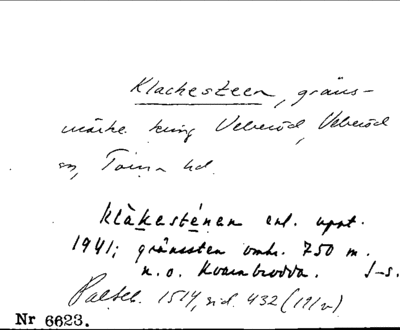 Klackesteen, gräns-
märke kring Veberöd, Veberöd
sn, Torna hd.
klȧkasténen enl. uppt.
1941; gränssten omkr. 750 m.
n.o. Kvarnbrodda. J-s.
Palteb. 1514, sid. 432 (19/
Nr 6623.